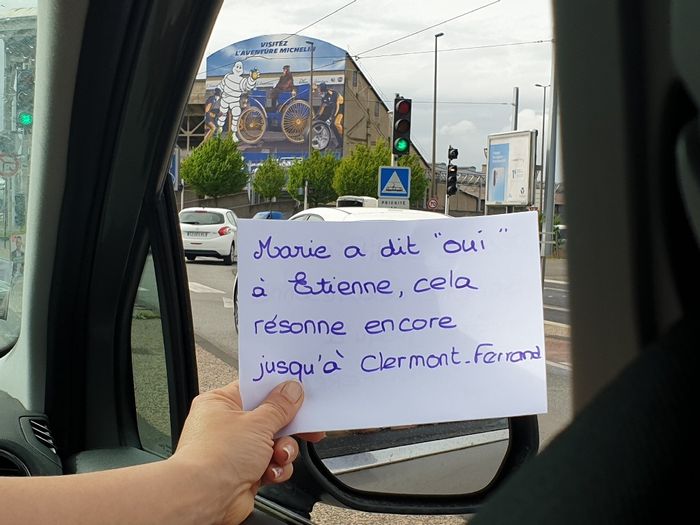 VISITEZ
L'AVENTURE MICHELIN
PRIORITÉ
Marie a dit "oui"
à Etienne, cela
résonne encore
jusqu'à Clermont-Ferrand